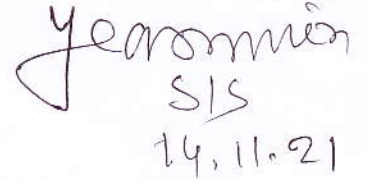 Yeasmin
SIS
14.11.21